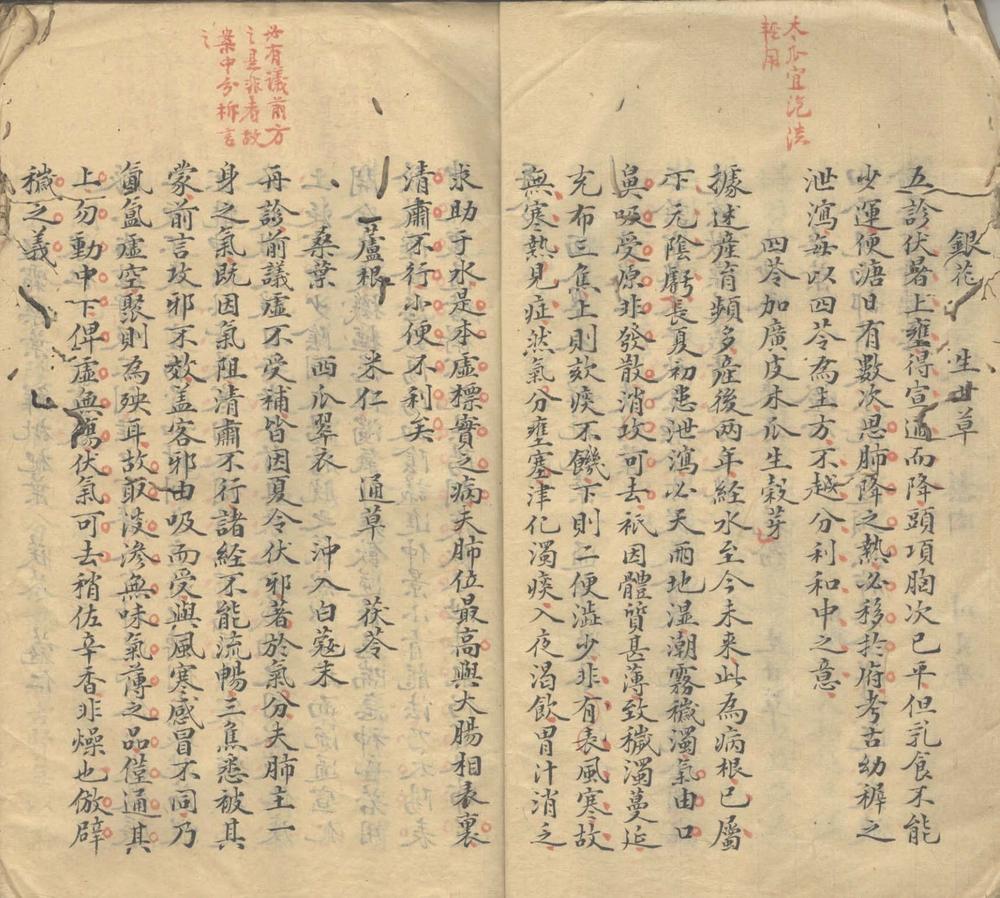 木瓜宜泡淡
輕用
銀花　生甘草
五診伏暑上壅得宣通而降頭項胸次已平但乳食不能
少運便溏旧有數次思肺降之熱必移扵府考古幼稺之
泄瀉每以四苓為主方不越分利和中之意
四苓加廣皮木瓜生穀芽
據述産育頻多産後兩年經水至今未来此為病根已屬
下元陰虧長夏初患泄瀉必天雨地湿潮霧穢濁氣由口
鼻吸受原非發散消攻可去祇因體質甚薄致穢濁蔓延
充布三焦上則欬痰不饑下則二便澁少非有表風寒故
無寒熱見症然氣分壅塞津化濁痰入夜渴飲胃汁消乏
必有議前方
之是非者故
案中分析言
之
求助于水是本虛標實之病夫肺位最高與大腸相表裏
清肅不行小便不利矣
蘆根　米仁　通草　茯苓
桑葉　西瓜翠衣　沖入白蔻末
再診前議虛不受補皆因夏令伏邪著於氣分夫肺主一
身之氣既因氣阻清肅不行諸経不能流暢三焦悉被其
蒙前言攻邪不效盖客邪由吸而受與風寒感冒不同乃
氤氳虛空聚則為殃耳故取淡滲無味氣薄之品僅通其
上勿動中下俾虛無傷伏氣可去稍佐辛香非燥也倣辟
穢之義